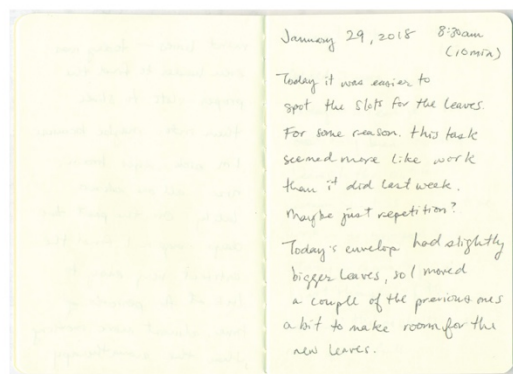 January 29, 2018 8:30am
(10min)
Today it was easier to
spot the slots for the leaves.
For some reason, this task
seemed more like work
than it did last week.
Maybe just repetition?
Today's envelop had slightly
bigger leaves, so I moved
a couple of the previous ones
a bit to make room for the
new leaves.